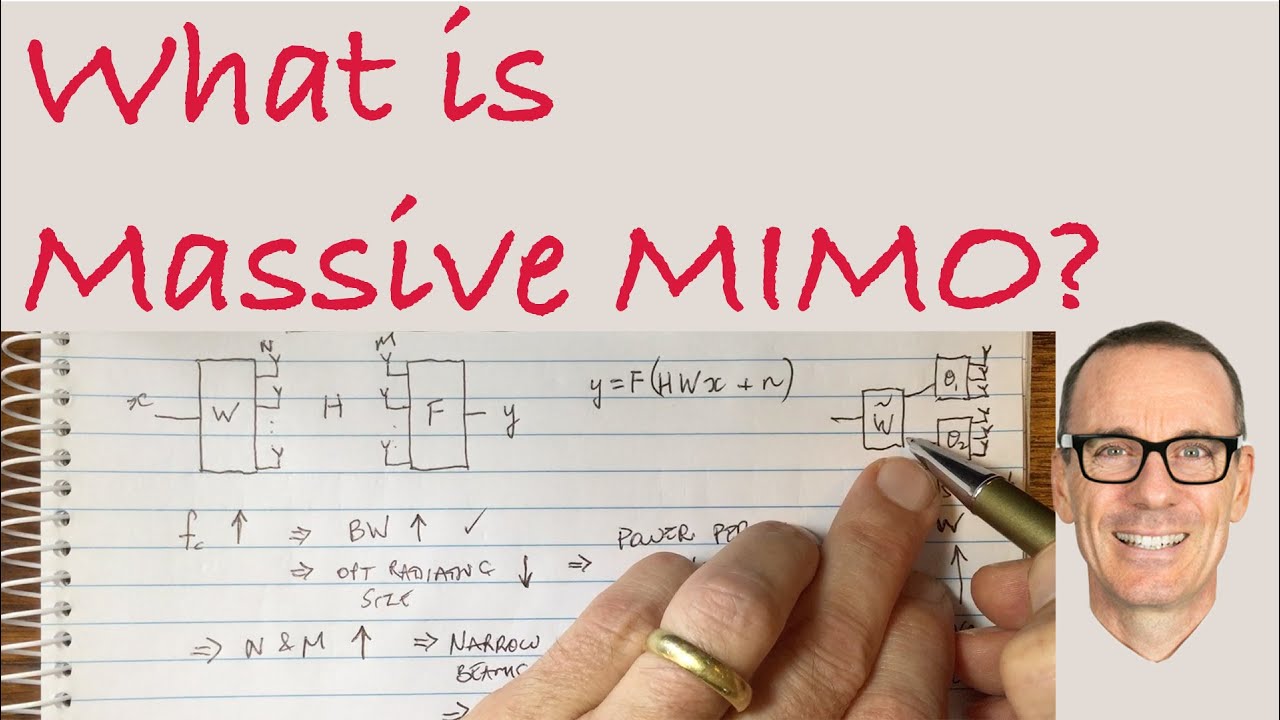 What is
Massive MIMO?
N M
x W H F y
y=F(HWx+n)
W̃ θ₁
θ₂
f_c ↑ ⇒ BW ↑ ✓
⇒ OPT RADIATING ↓ ⇒ POWER PER
SIZE
W ↑
⇒ N & M ↑ ⇒ NARROW
BEAMS
⇒